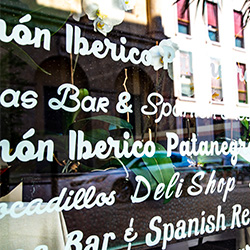 món Iberico P
as Bar & Spanish
món Iberico Patanegra
ocadillos Deli Shop
Bar & Spanish Re